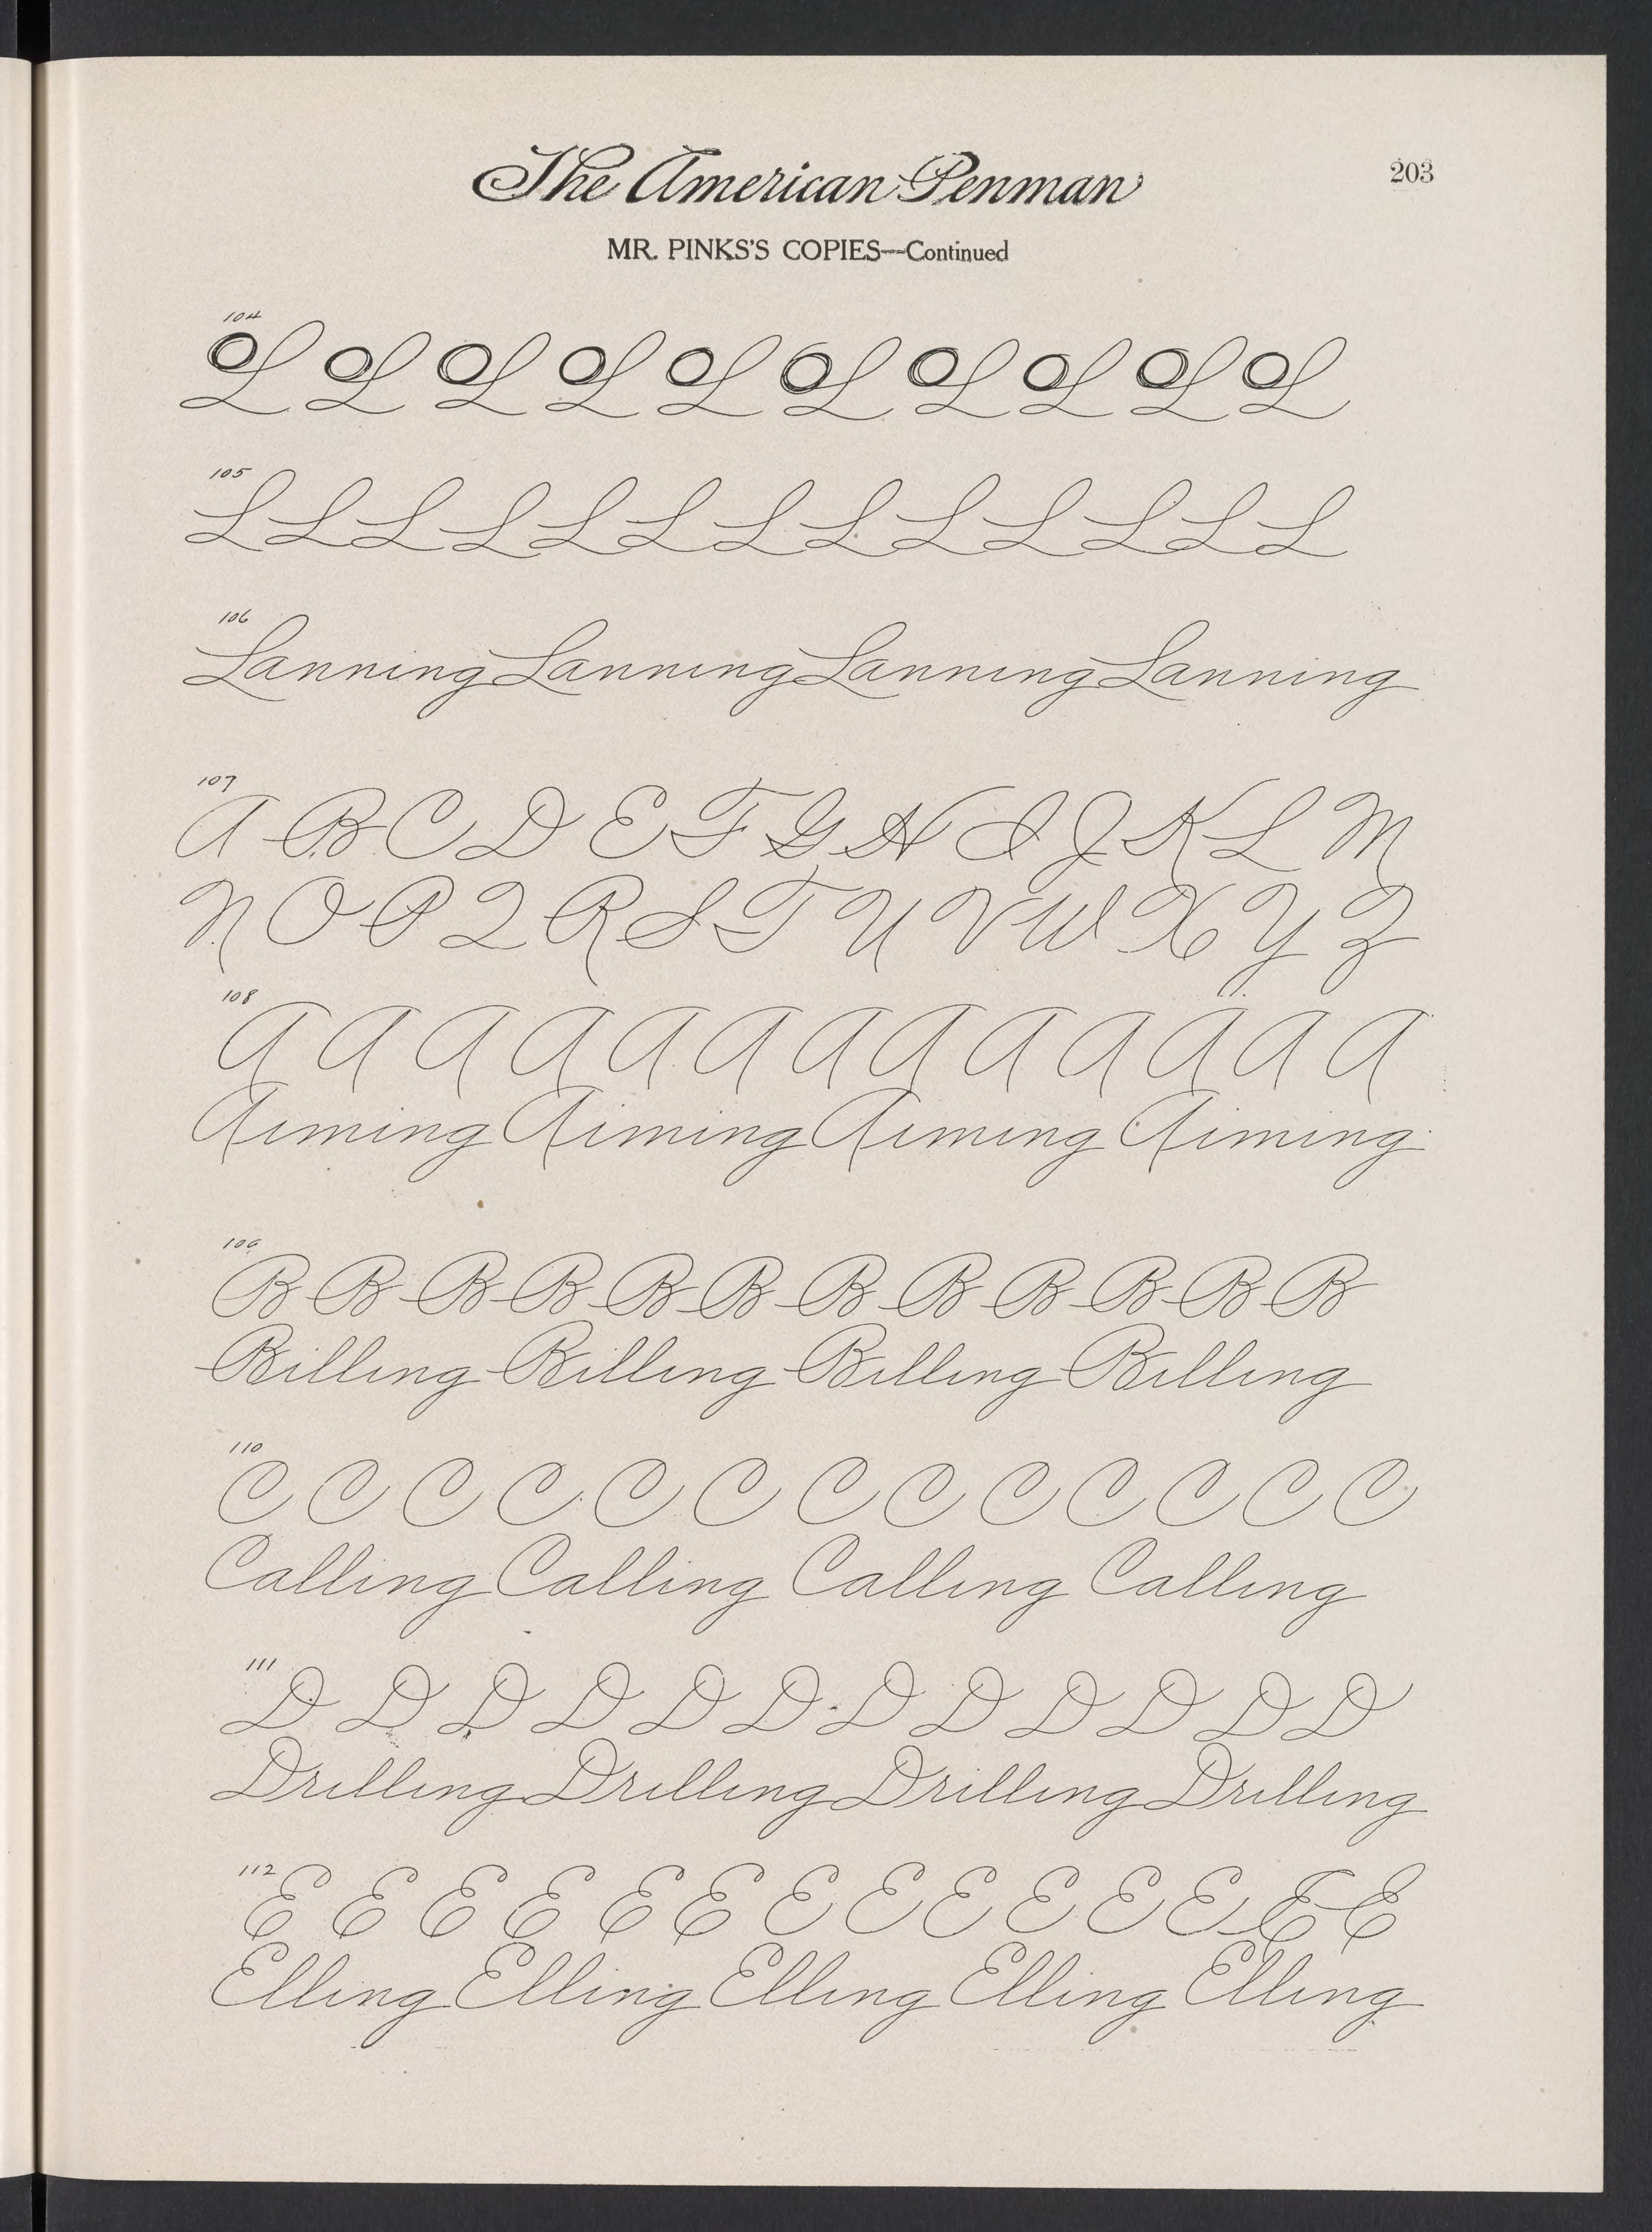 The American Penman
203
MR. PINKS'S COPIES—Continued
104
L L L L L L L L L L
105
L L L L L L L L L L L L L
106
Lanning Lanning Lanning Lanning
107
A B C D E F G H I J K L M
N O P Q R S T U V W X Y Z
108
A A A A A A A A A A A A A
Aiming Aiming Aiming Aiming
109
B B B B B B B B B B B B
Billing Billing Billing Billing
110
C C C C C C C C C C C C C
Calling Calling Calling Calling
111
D D D D D D D D D D D D
Drilling Drilling Drilling Drilling
112
E E E E E E E E E E E E E E
Elling Elling Elling Elling Elling